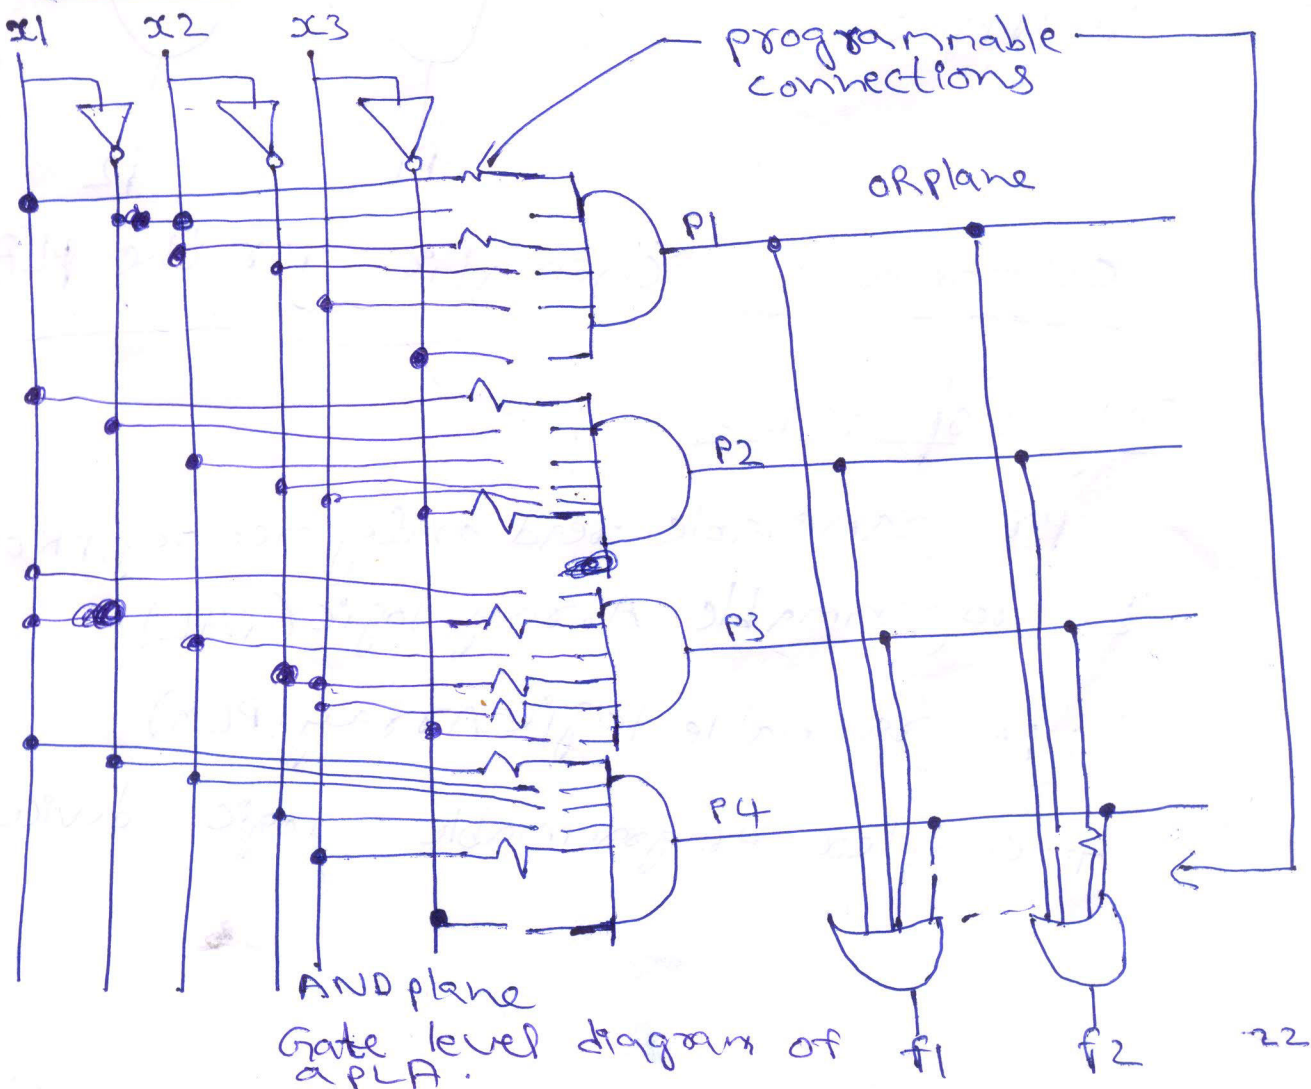 x1 x2 x3
programmable
connections
ORplane
P1
P2
P3
P4
ANDplane
Gate level diagram of
a PLA.
f1 f2
22